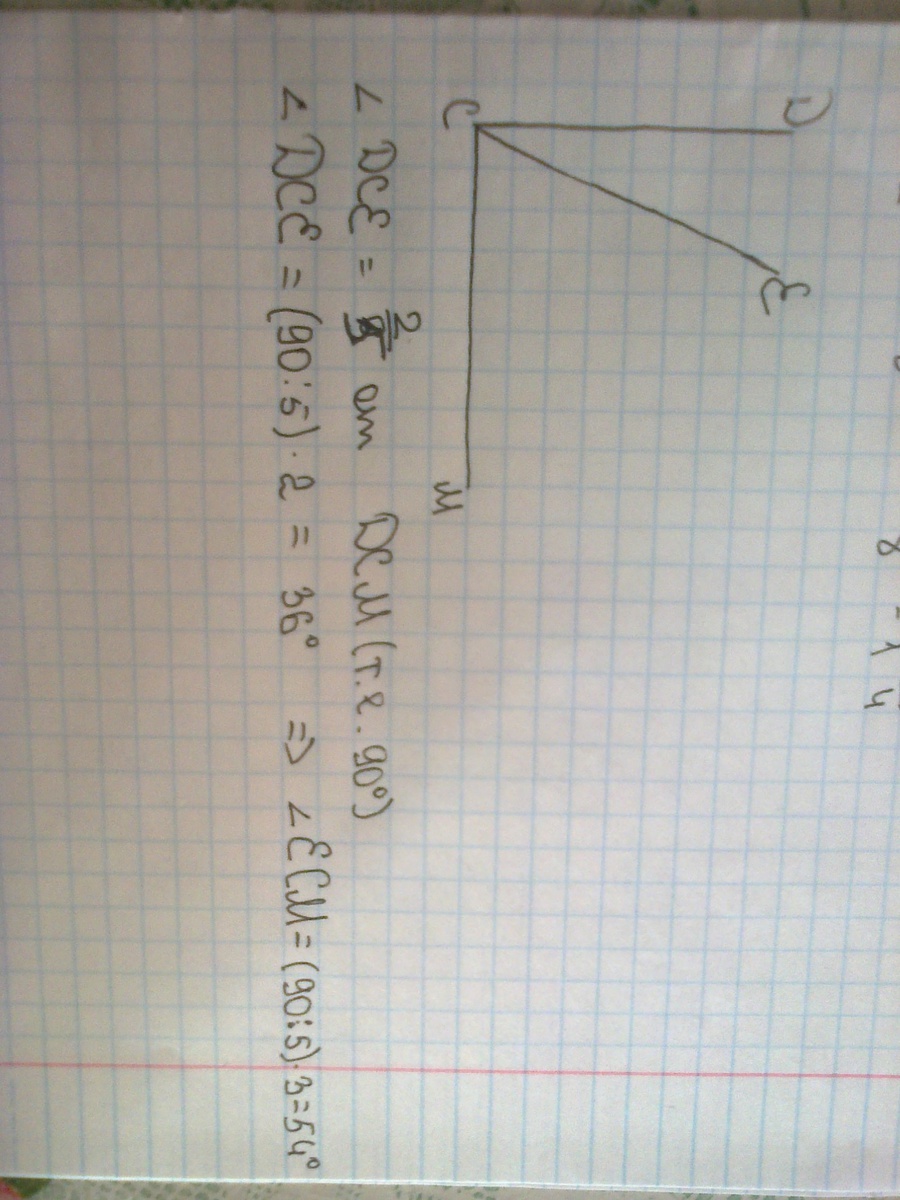 D
E
C
M
∠ DCE = 2/5 от DCM (т.е. 90°)
∠ DCE = (90:5)·2 = 36° => ∠ECM = (90:5)·3=54°